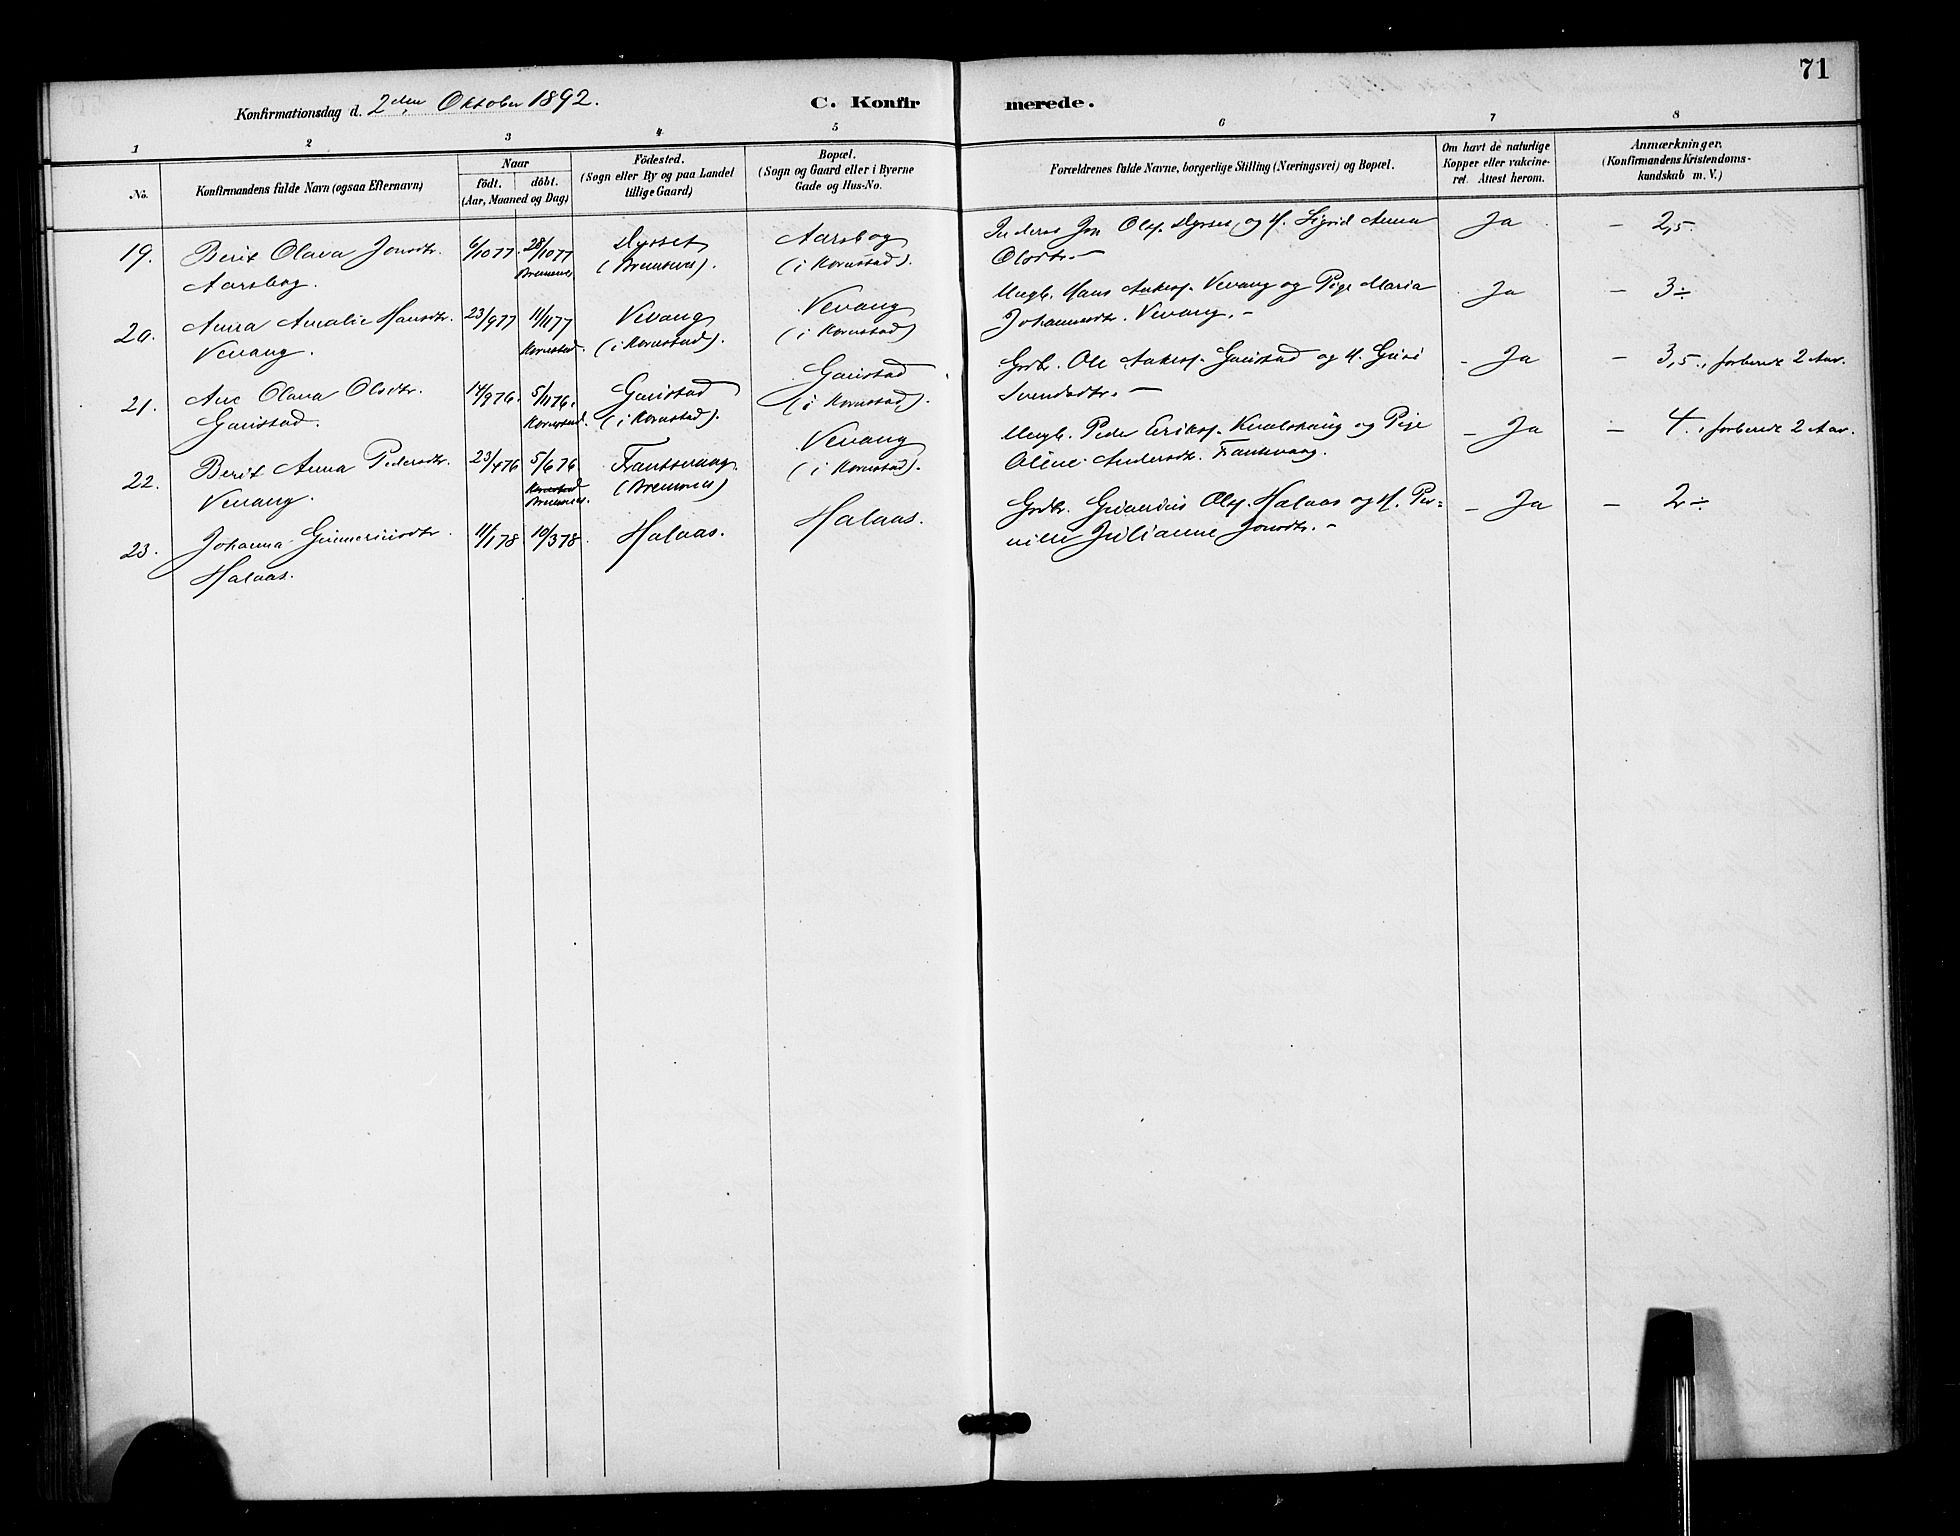 71
Konfirmationsdag d. 2den Oktober 1892.
C. Konfirmerede.
1 2 3 4 5 6 7 8
No.
Konfirmandens fulde Navn (ogsaa Efternavn)
Naar
födt. döbt.
(Aar, Maaned og Dag)
Födested.
(Sogn eller By og paa Landet
tillige Gaard)
Bopæl.
(Sogn og Gaard eller i Byerne
Gade og Hus-No.
Forældrenes fulde Navne, borgerlige Stilling (Næringsvei) og Bopæl.
Om havt de naturlige
Kopper eller vakcine-
ret. Attest herom.
Anmærkninger.
(Konfirmandens Kristendoms-
kundskab m. V.)
19. Berit Olava Jonsdtr. 6/10 77. 28/10 77 Dysset Aarsbog Jon Ols. Dysset og H. Sigrid Anna Ja – 2,5.
Aarsbog. Bremsnes (Bremsnes). (i Kornstad). Olsdtr. –
20. Anna Amalie Hansdtr. 23/9 77 11/11 77 Vevang Vevang Ungk. Hans Ankers. Vevang og Pige Maria Ja – 3 ÷
Vevang. Kornstad. (i Kornstad). (i Kornstad) Johannesdtr. Vevang. –
21. Ane Olava Olsdtr. 14/9 76. 5/11 76. Gaustad Gaustad Grdbr. Ole Ankers. Gaustad og H. Guri – Ja – 3,5., forberedt 2 Aar.
Gaustad. Kornstad. (i Kornstad). (i Kornstad). Svendsdtr. –
22. Berit Anna Pedersdtr. 23/4 76 5/6 76 Frantsvaag Vevang Ungk. Peder Eriks. og Pige – Ja – 4., forberedt 2 Aar.
Vevang. Kornstad Bremsnes. (Bremsnes) (i Kornstad). Oline Andersdtr. Frantsvaag.
23. Johanna Gunneriusdtr. 11/1 78 10/3 78. Halaas. Halaas. Grdbr. Ols. Halaas og H. Per- – Ja – 2 ÷
Halaas. nille Julianne Jonsdtr. –